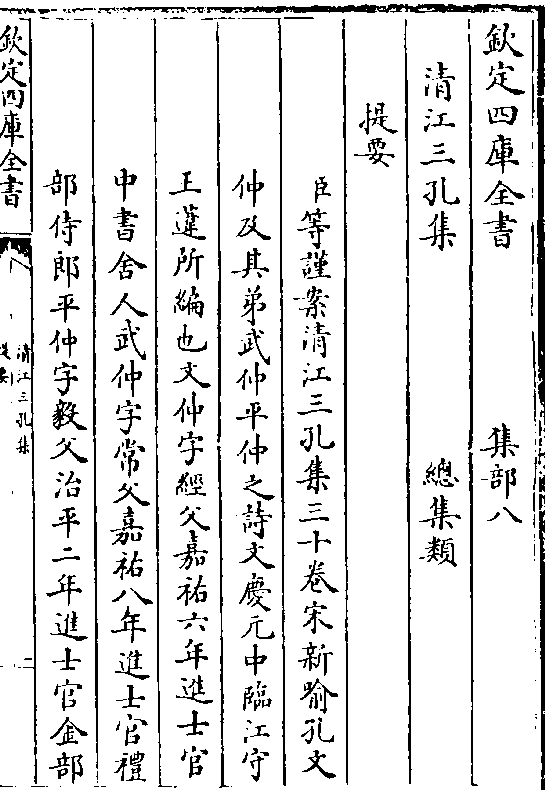 欽定四庫全書 集部八
清江三孔集 總集類
提要
臣等謹案清江三孔集三十卷宋新喻孔文
仲及其弟武仲平仲之詩文慶元中臨江守
王𦾔所編也文仲字經父嘉祐六年進士官
中書舍人武仲字常父嘉祐八年進士官禮
部侍郎平仲字毅父治平二年進士官金部
欽定四庫全書
清江三孔集
提要